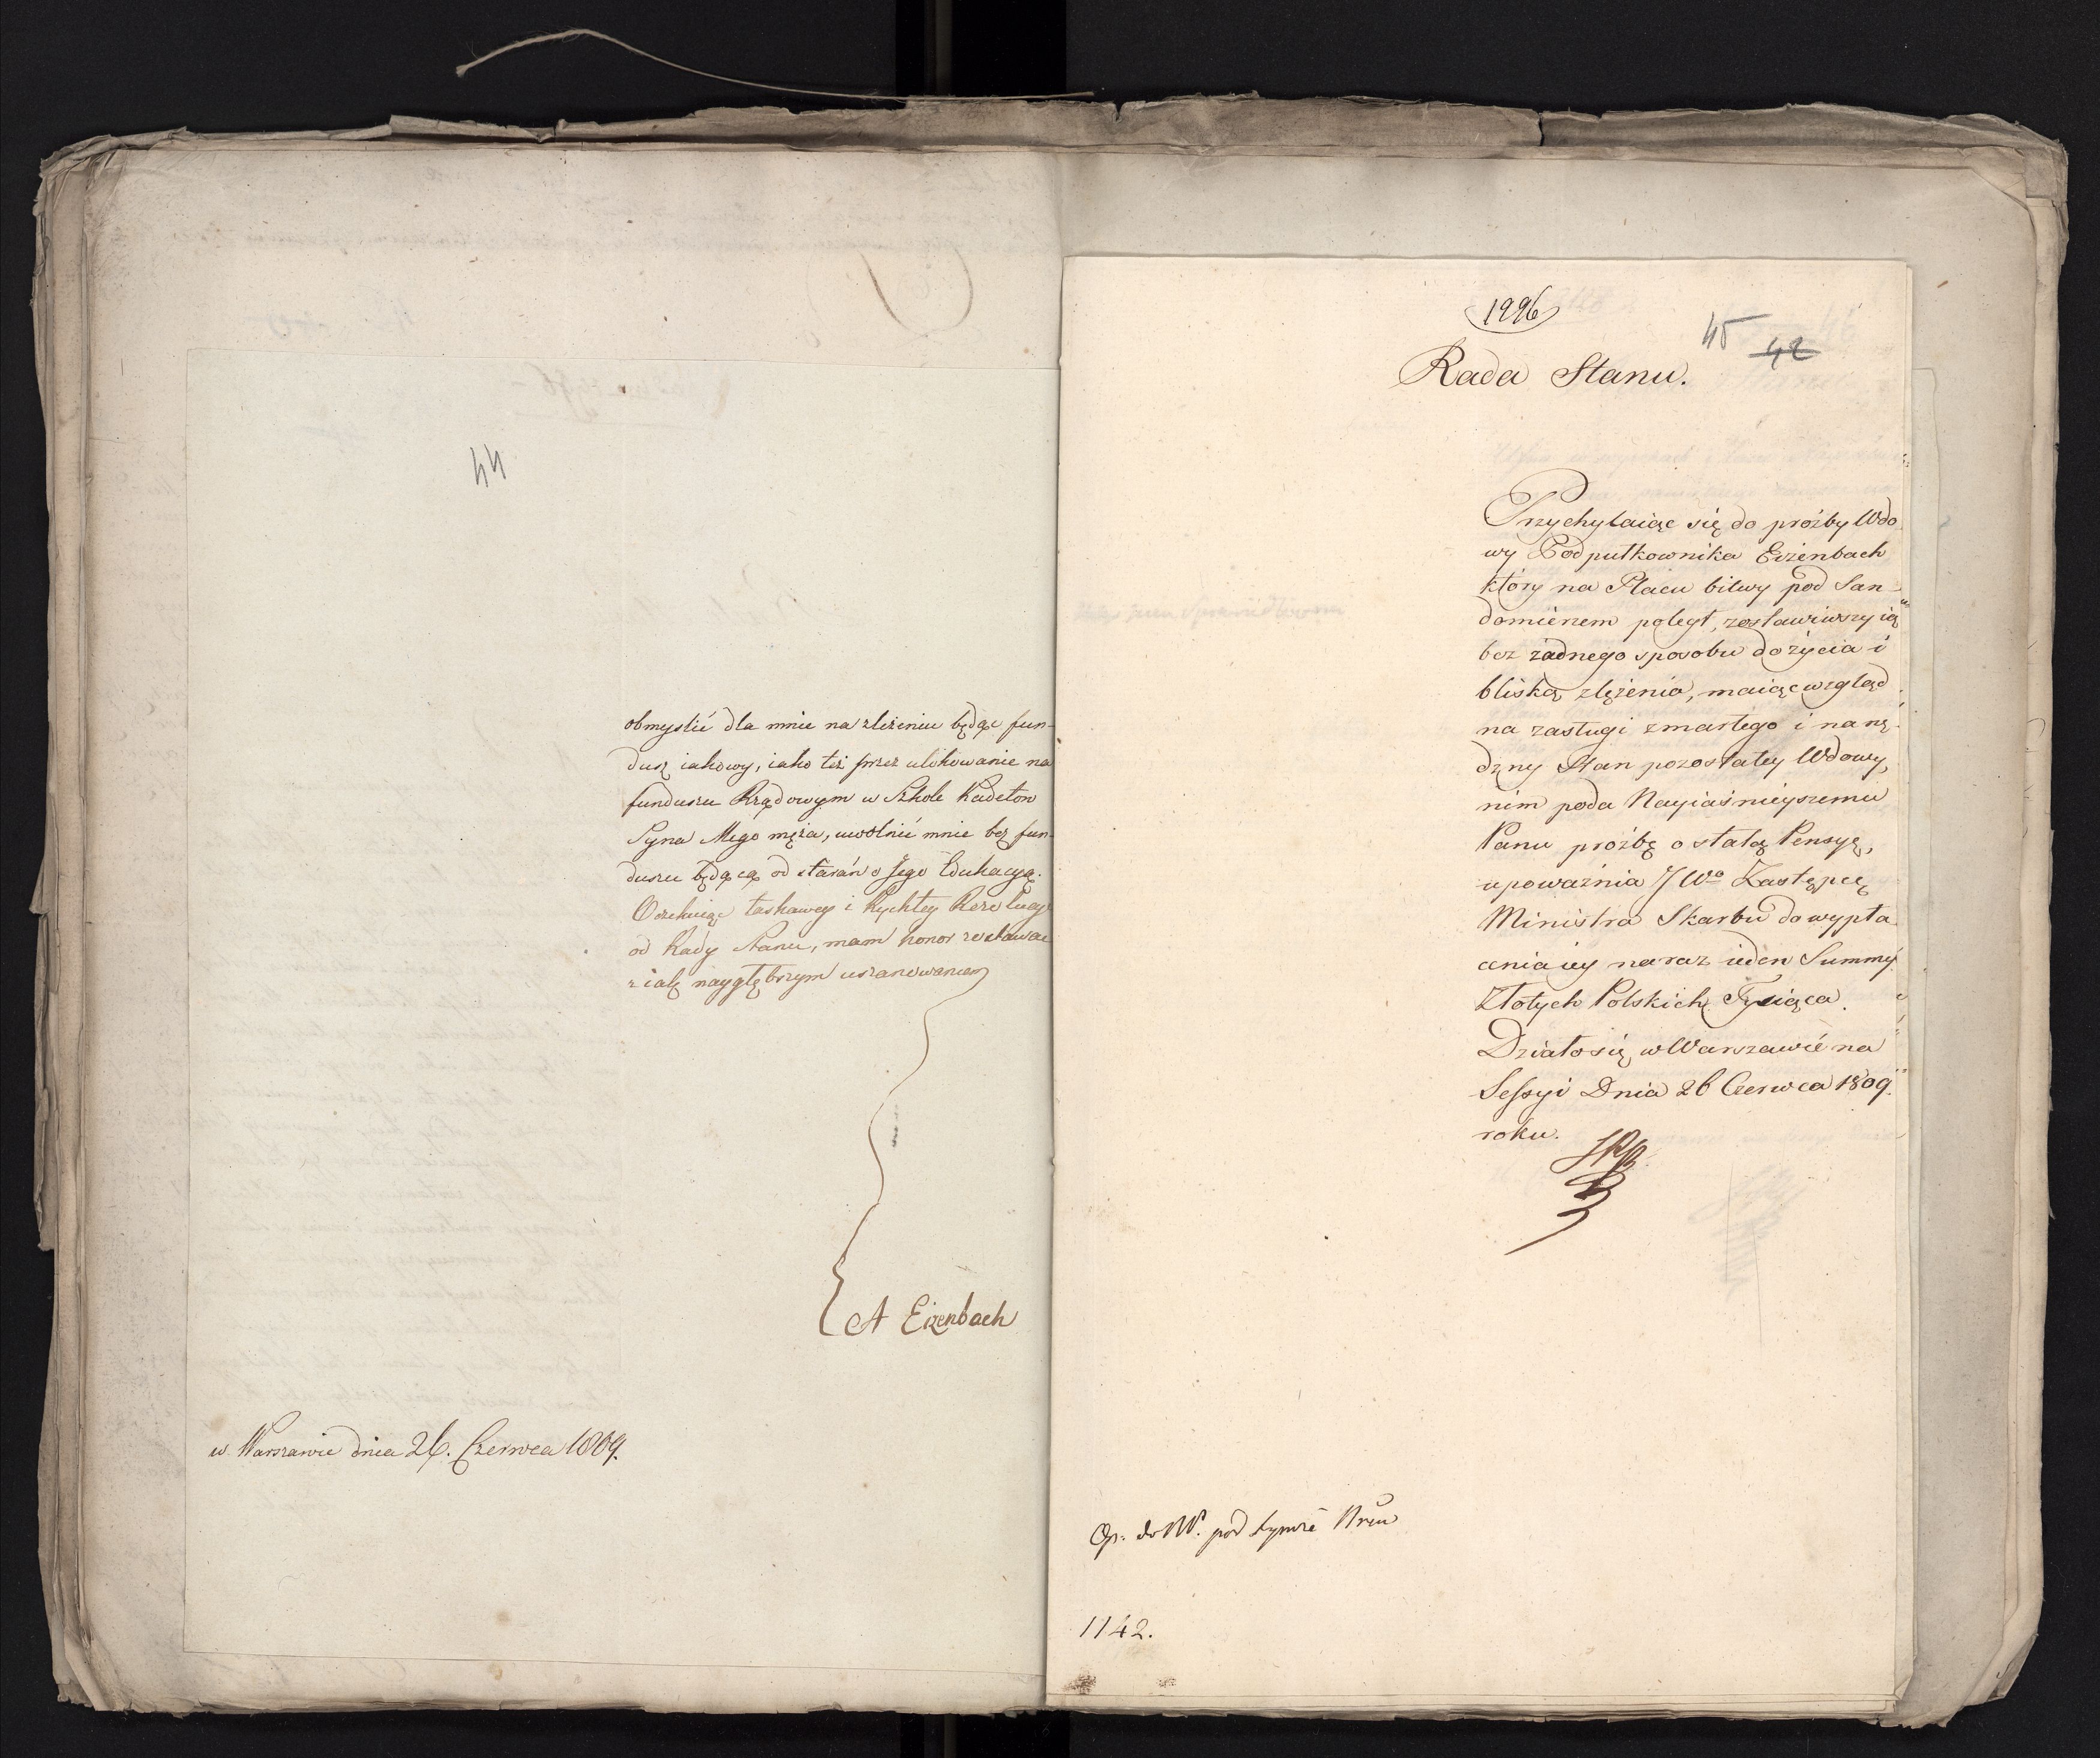 44
obmyslić dla mnie na zleżeniu będąc fun-
dusz iakowy, iako też przez ulokowanie na
funduszu Rządowym w Szkole Kadetow
Syna Mego męża, uwolnić mnie bez fun-
duszu będącą od starań o Jego Edukacyą.
Oczekuiąc łaskawey i Rychłey Rezolucyi
od Rady Stanu, mam honor zostawać
z iak naygłębszym uszanowaniem
A Eizenbach
w Warszawie dnia 26. Czerwca 1809.
1996
45 42
Rada Stanu.
Przychylaiąc się do prożby Wdo
wy Podpułkownika Eizenbach
który na Placu bitwy pod San-
domierzem poległ, zostawiwszy ią
bez żadnego sposobu do życia i
bliską zlężenia, maiąc wzgląd
na zasługi zmarłego i na nę-
dzny Stan pozostałey Wdowy,
nim poda Nayiaśnieyszemu
Panu prożbę o stałą Pensyę,
upoważnia JWo Zastępcę
Ministra Skarbu do wypła
cenia iey na raz ieden Summy
Złotych Polskich Tysiąca.
Działo się w Warszawie na
Sessyi Dnia 26 Czerwca 1809
roku.
Op. do pod tymże Nrem
1142.